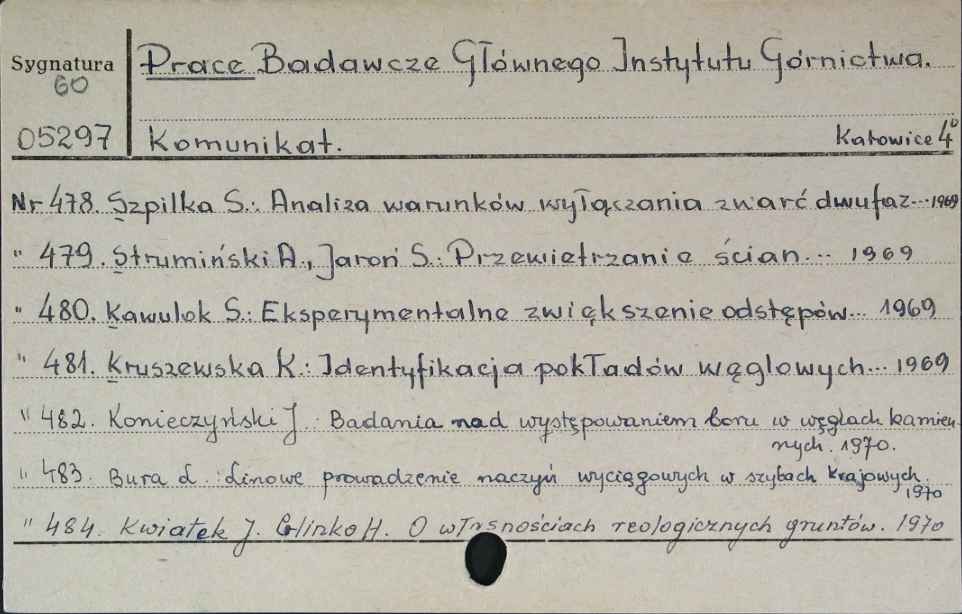 Sygnatura
60
Prace Badawcze Głównego Instytutu Górnictwa.
05297
Komunikat.
Katowice 4°
Nr 478. Szpilka S.: Analiza warunków wyłączania zwarć dwufaz... 1969
" 479. Strumiński A., Jaroń S.: Przewietrzanie ścian... 1969
" 480. Kawulok S.: Eksperymentalne zwiększenie odstępów... 1969
" 481. Kruszewska K.: Identyfikacja pokładów węglowych... 1969
" 482. Konieczyński J. Badania nad występowaniem boru w węglach kamien-
nych. 1970.
" 483. Bura L. : Linowe prowadzenie naczyń wyciągowych w szybach krajowych.
1970
" 484. Kwiatek J. Glinko H. O własnościach reologicznych gruntów. 1970